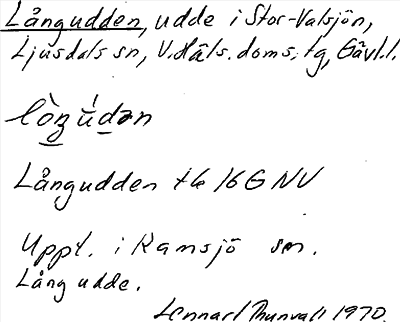 Långudden, udde i Stor-Valsjön,
Ljusdals sn, V. Häls. doms. tg, Gävl. l.
lòŋúdən
Långudden tk 16G NV
Uppt. i Ramsjö sn.
Lång udde.
Lennart Thunvall 1970.